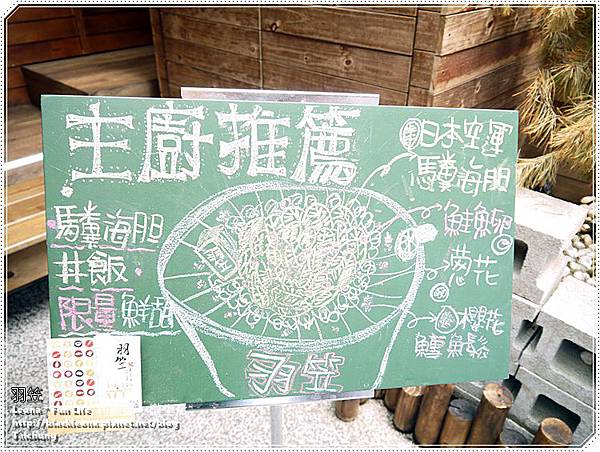 主廚推薦
馬糞海胆
丼飯
限量鮮甜
日本空運
馬糞海胆
鮭魚卵
蔥花
櫻花
鱈魚鬆
羽笠
羽笠
羽笠
Leona's Fun Life
http://blackleona.pixnet.net/blog
Taichung